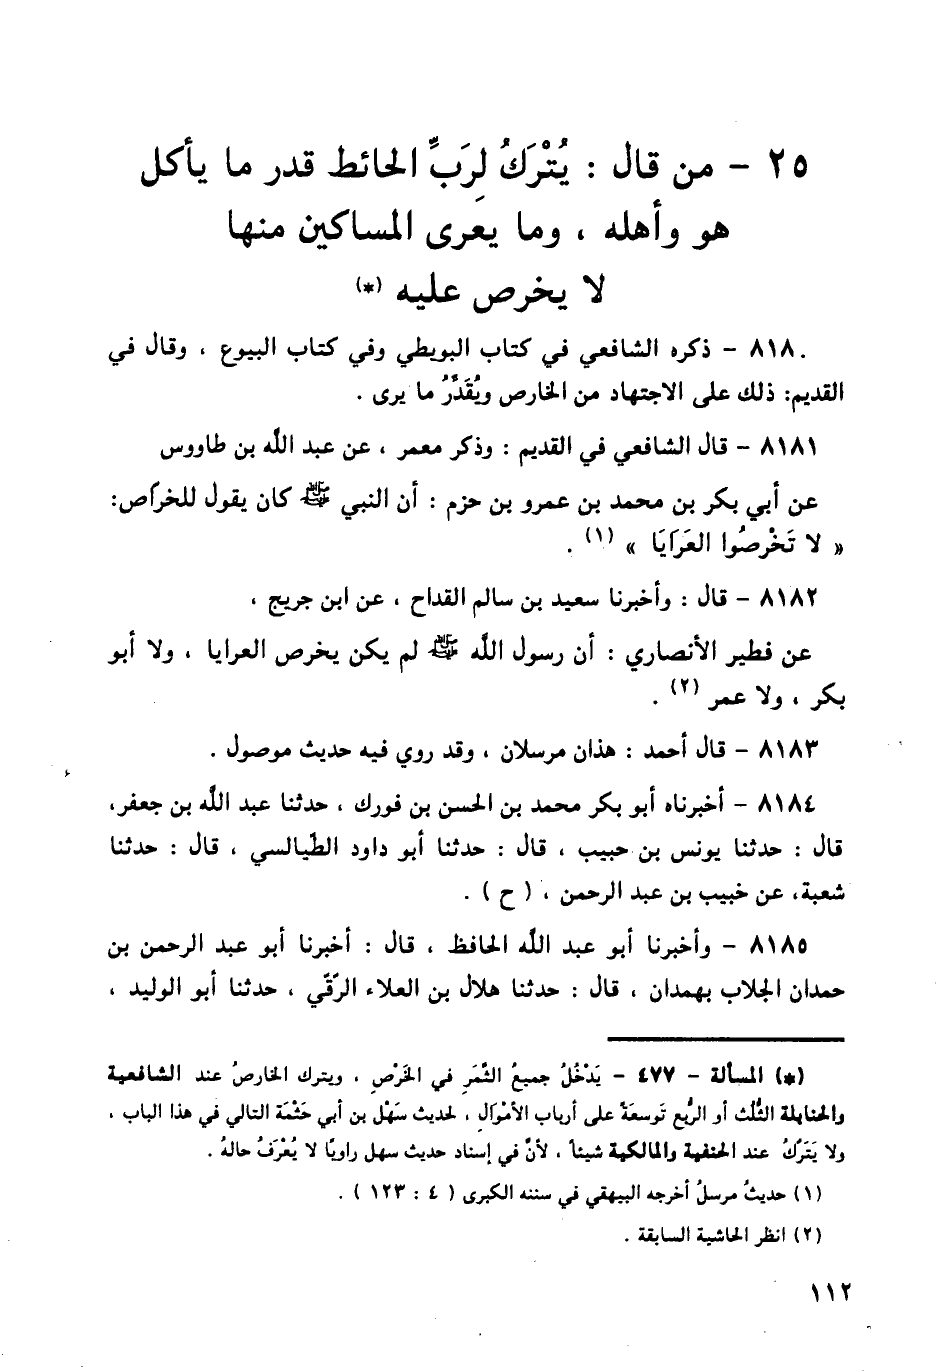 ٢٥ – من قال : يُتْرَكُ لِرَبِّ الحائط قدر ما يأكل
هو وأهله ، وما يعرى المساكين منها
لا يخرص عليه (*)
٨١٨٠ – ذكره الشافعي في كتاب البويطي وفي كتاب البيوع ، وقال في
القديم: ذلك على الاجتهاد من الخارص ويُقَدَّرُ ما يرى .
٨١٨١ – قال الشافعي في القديم : وذكر معمر ، عن عبد الله بن طاووس
عن أبي بكر بن محمد بن عمرو بن حزم : أن النبي ﷺ كان يقول للخرّاص:
« لا تَخْرصُوا العَرَايَا » (١) .
٨١٨٢ – قال : وأخبرنا سعيد بن سالم القداح ، عن ابن جريج ،
عن فطير الأنصاري : أن رسول الله ﷺ لم يكن يخرص العرايا ، ولا أبو
بكر ، ولا عمر (٢) .
٨١٨٣ – قال أحمد : هذان مرسلان ، وقد روي فيه حديث موصول .
٨١٨٤ – أخبرناه أبو بكر محمد بن الحسن بن فورك ، حدثنا عبد الله بن جعفر،
قال : حدثنا يونس بن حبيب ، قال : حدثنا أبو داود الطّيالسي ، قال : حدثنا
شعبة، عن خبيب بن عبد الرحمن ، ( ح ) .
٨١٨٥ – وأخبرنا أبو عبد الله الحافظ ، قال : أخبرنا أبو عبد الرحمن بن
حمدان الجلاب بهمدان ، قال : حدثنا هلال بن العلاء الرقّي ، حدثنا أبو الوليد ،
(*) المسألة – ٤٧٧ – يَدْخُلُ جميعُ الثَّمَرِ في الخَرْصِ ، ويترك الخارصُ عند الشافعية
والحنابلة الثُّلث أو الرُّبع تَوسعَةً على أرباب الأمْوَال ، لحديث سَهْل بن أبي حَثْمَة التالي في هذا الباب ،
ولا يَتَركُ عند الحنفية والمالكية شيئاً ، لأنَّ في إسناد حديث سهل راويًا لا يُعْرَفُ حالهُ .
(١) حديثُ مرسلُ أخرجه البيهقي في سننه الكبرى ( ٤ : ١٢٣ ) .
(٢) انظر الحاشية السابقة .
١١٢